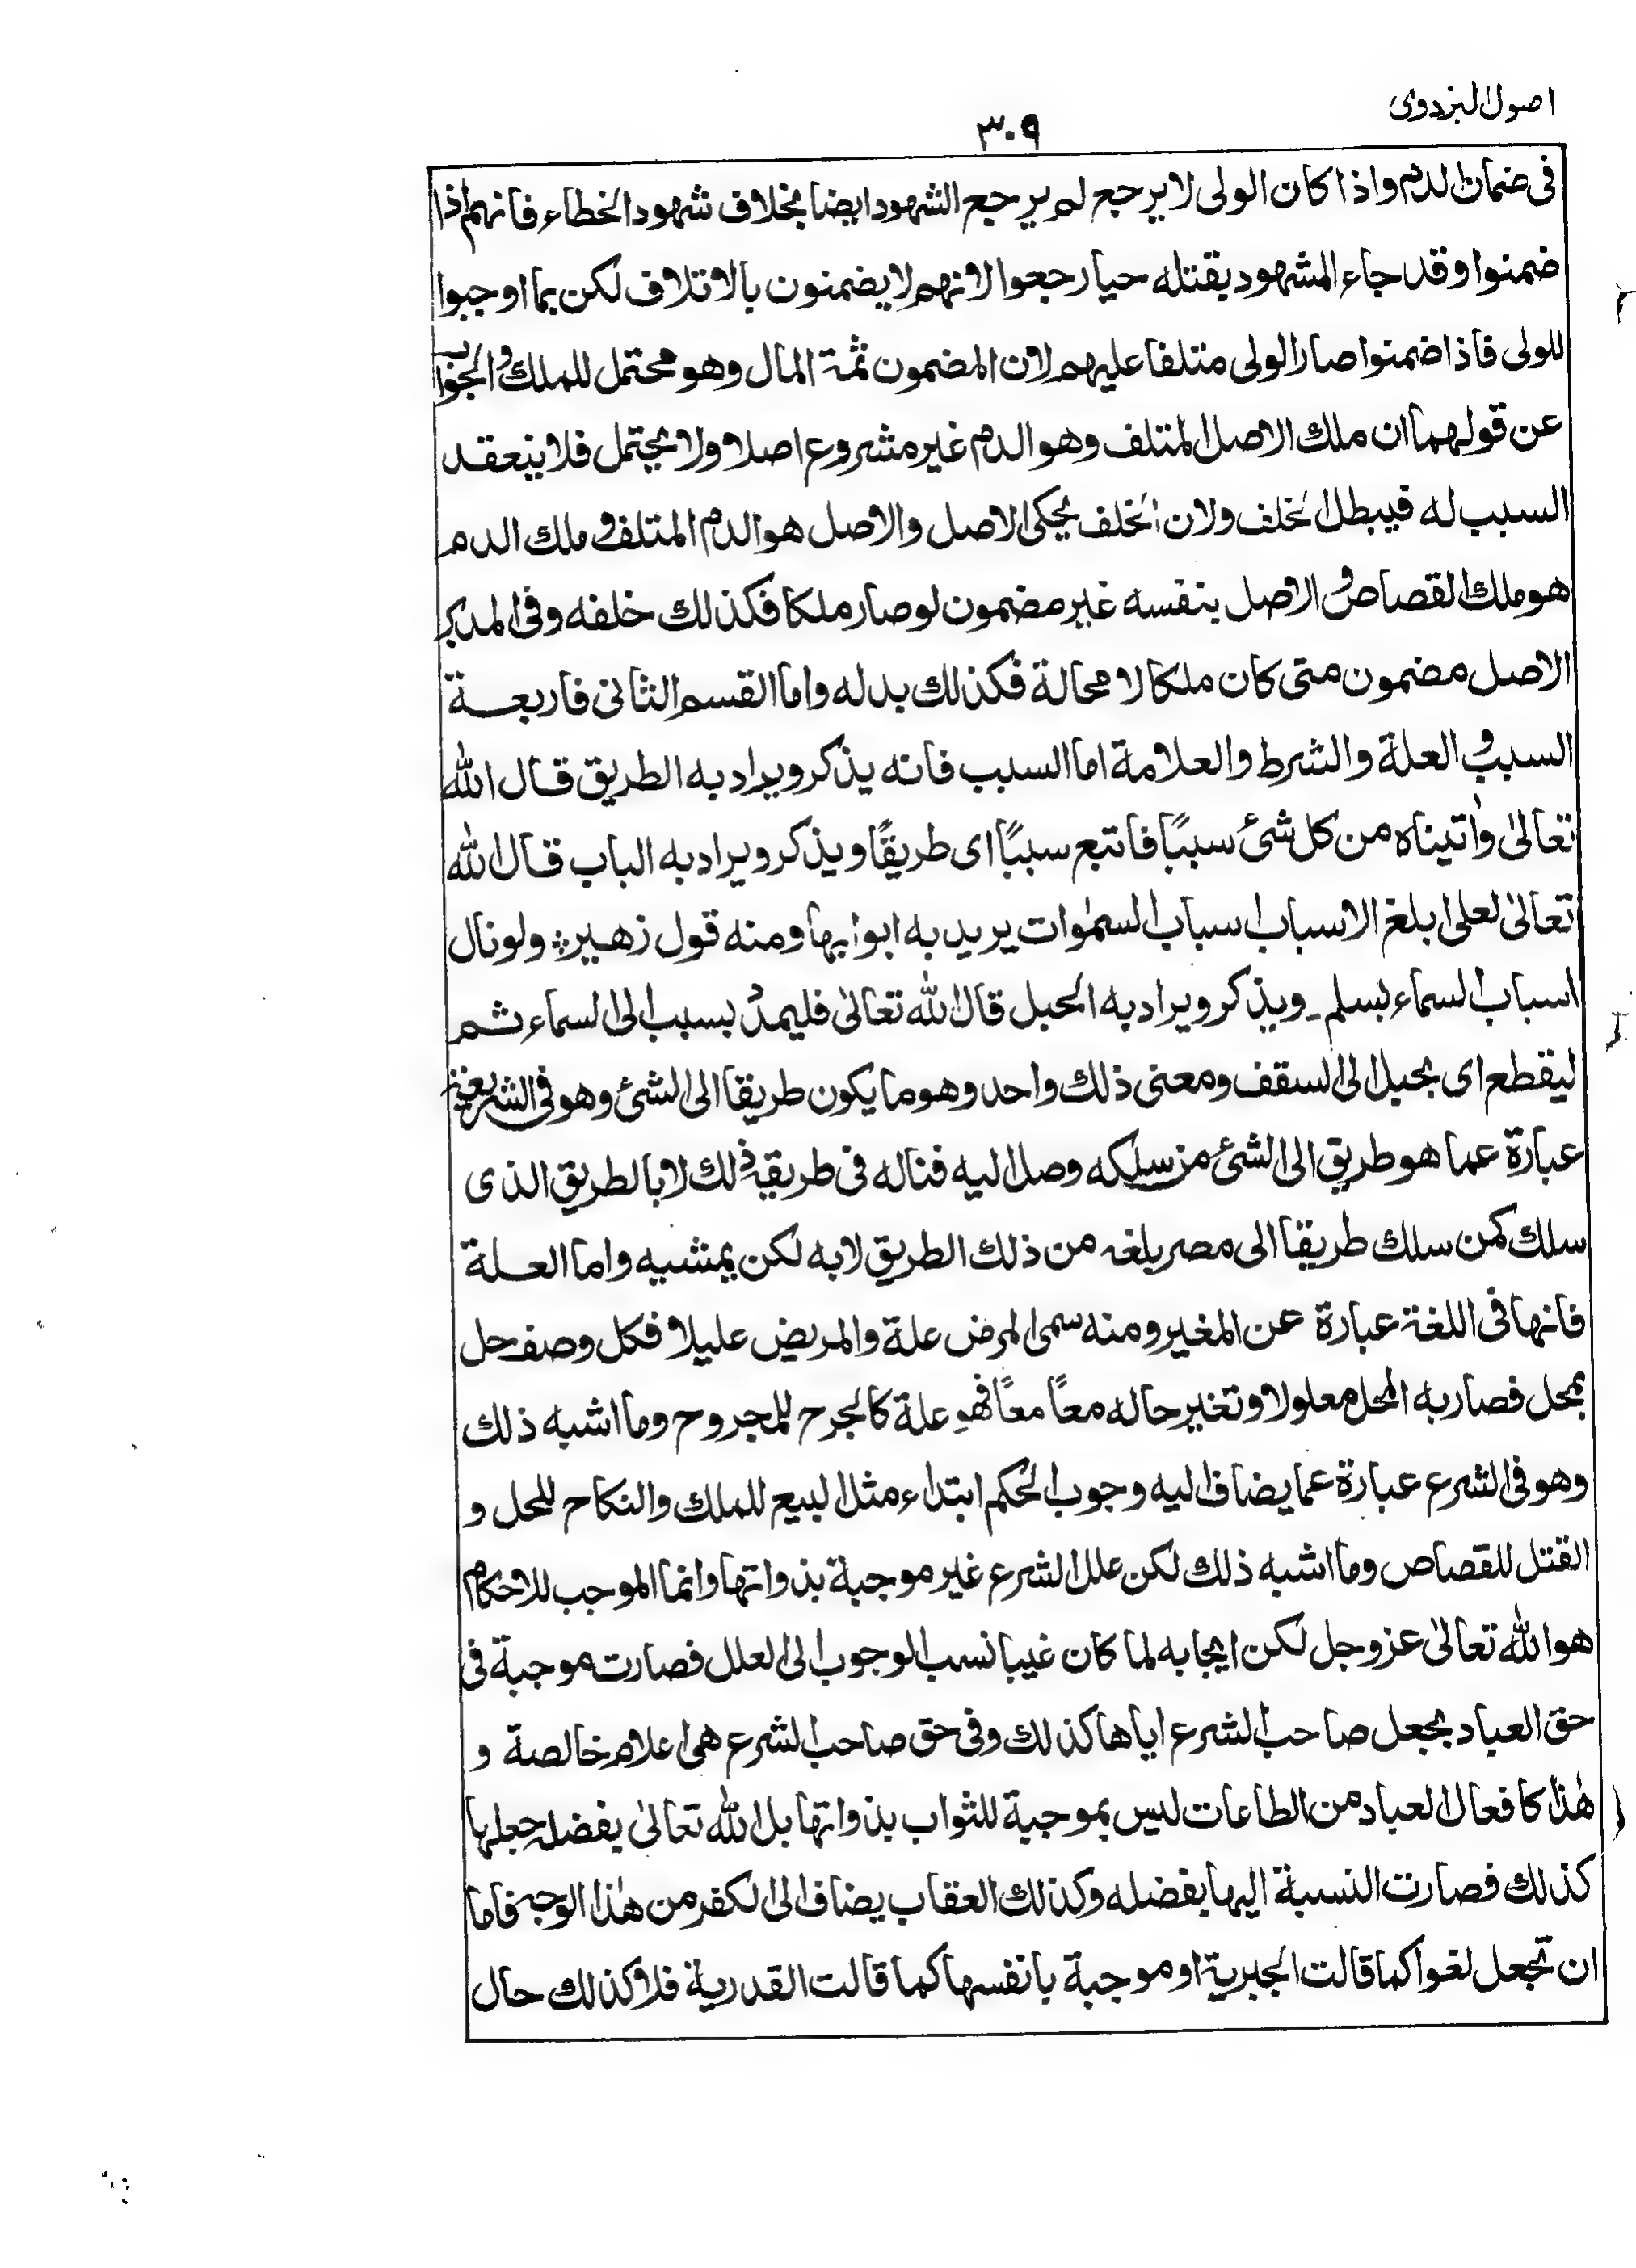 اصول البزدوی
۳۰۹
فی ضمان الدم واذا کان الولی لا یرجع لم یرجع الشهود ایضا بخلاف شهود الخطاء فانهم اذا
ضمنوا وقد جاء المشهود بقتله حیا رجعوا لانهم لا یضمنون بالاتلاف لکن بما اوجبوا
للولی فاذا ضمنوا صار الولی متلفا علیهم لان المضمون ثمة المال وهو محتمل للملك والجواب
عن قولهما ان ملك الاصل المتلف وهو الدم غیر مشروع اصلا ولا یحتمل فلا ینعقد
السبب له فیبطل الخلف ولان الخلف یحکی الاصل والاصل هو الدم المتلف وملك الدم
هو ملك القصاص والاصل بنفسه غیر مضمون لو صار ملکا فکذلك خلفه وفی المدبر
الاصل مضمون متی کان ملکا لا محالة فکذلك بدله واما القسم الثانی فاربعة
السبب والعلة والشرط والعلامة اما السبب فانه یذکر ویراد به الطریق قال الله
تعالیٰ واٰتیناه من کل شیٔ سببًا فاتبع سببًا ای طریقًا ویذکر ویراد به الباب قال الله
تعالیٰ لعلی ابلغ الاسباب اسباب السمٰوات یرید به ابوابها ومنه قول زهیر ؞ ولو نال
اسباب السماء بسلم ۔ ویذکر ویراد به الحبل قال الله تعالیٰ فلیمدُد بسبب الی السماء ثم
لیقطع ای بحبل الی السقف ومعنی ذلك واحد وهو ما یکون طریقا الی الشئ وهو فی الشریعة
عبارة عما هو طریق الی الشئ من سلکه وصل الیه فناله فی طریقه ذلك لا بالطریق الذی
سلك کمن سلك طریقا الی مصر بلغه من ذلك الطریق لا به لکن بمشیه واما العلة
فانها فی اللغة عبارة عن المغیر ومنه سمی المرض علة والمریض علیلا فکل وصف حل
بمحل فصار به المحل معلولا وتغیر حاله معًا معًا فهو علة کالجرح للمجروح وما اشبه ذلك
وهو فی الشرع عبارة عما یضاف الیه وجوب الحکم ابتداء مثل البیع للملك والنکاح للحل و
القتل للقصاص وما اشبه ذلك لکن علل الشرع غیر موجبة بذواتها وانما الموجب للاحکام
هو الله تعالیٰ عز وجل لکن ایجابه لما کان غیبا نسب الوجوب الی العلل فصارت موجبة فی
حق العباد بجعل صاحب الشرع ایاها کذلك وفی حق صاحب الشرع هی اعلام خالصة و
هٰذا کافعال العباد من الطاعات لیس بموجبة للثواب بذواتها بل الله تعالیٰ بفضله جعلها
کذلك فصارت النسبة الیها بفضله وکذلك العقاب یضاف الی الکفر من هٰذا الوجه فاما
ان تجعل لغوا کما قالت الجبریة او موجبة بانفسها کما قالت القدریة فلا وکذلك حال